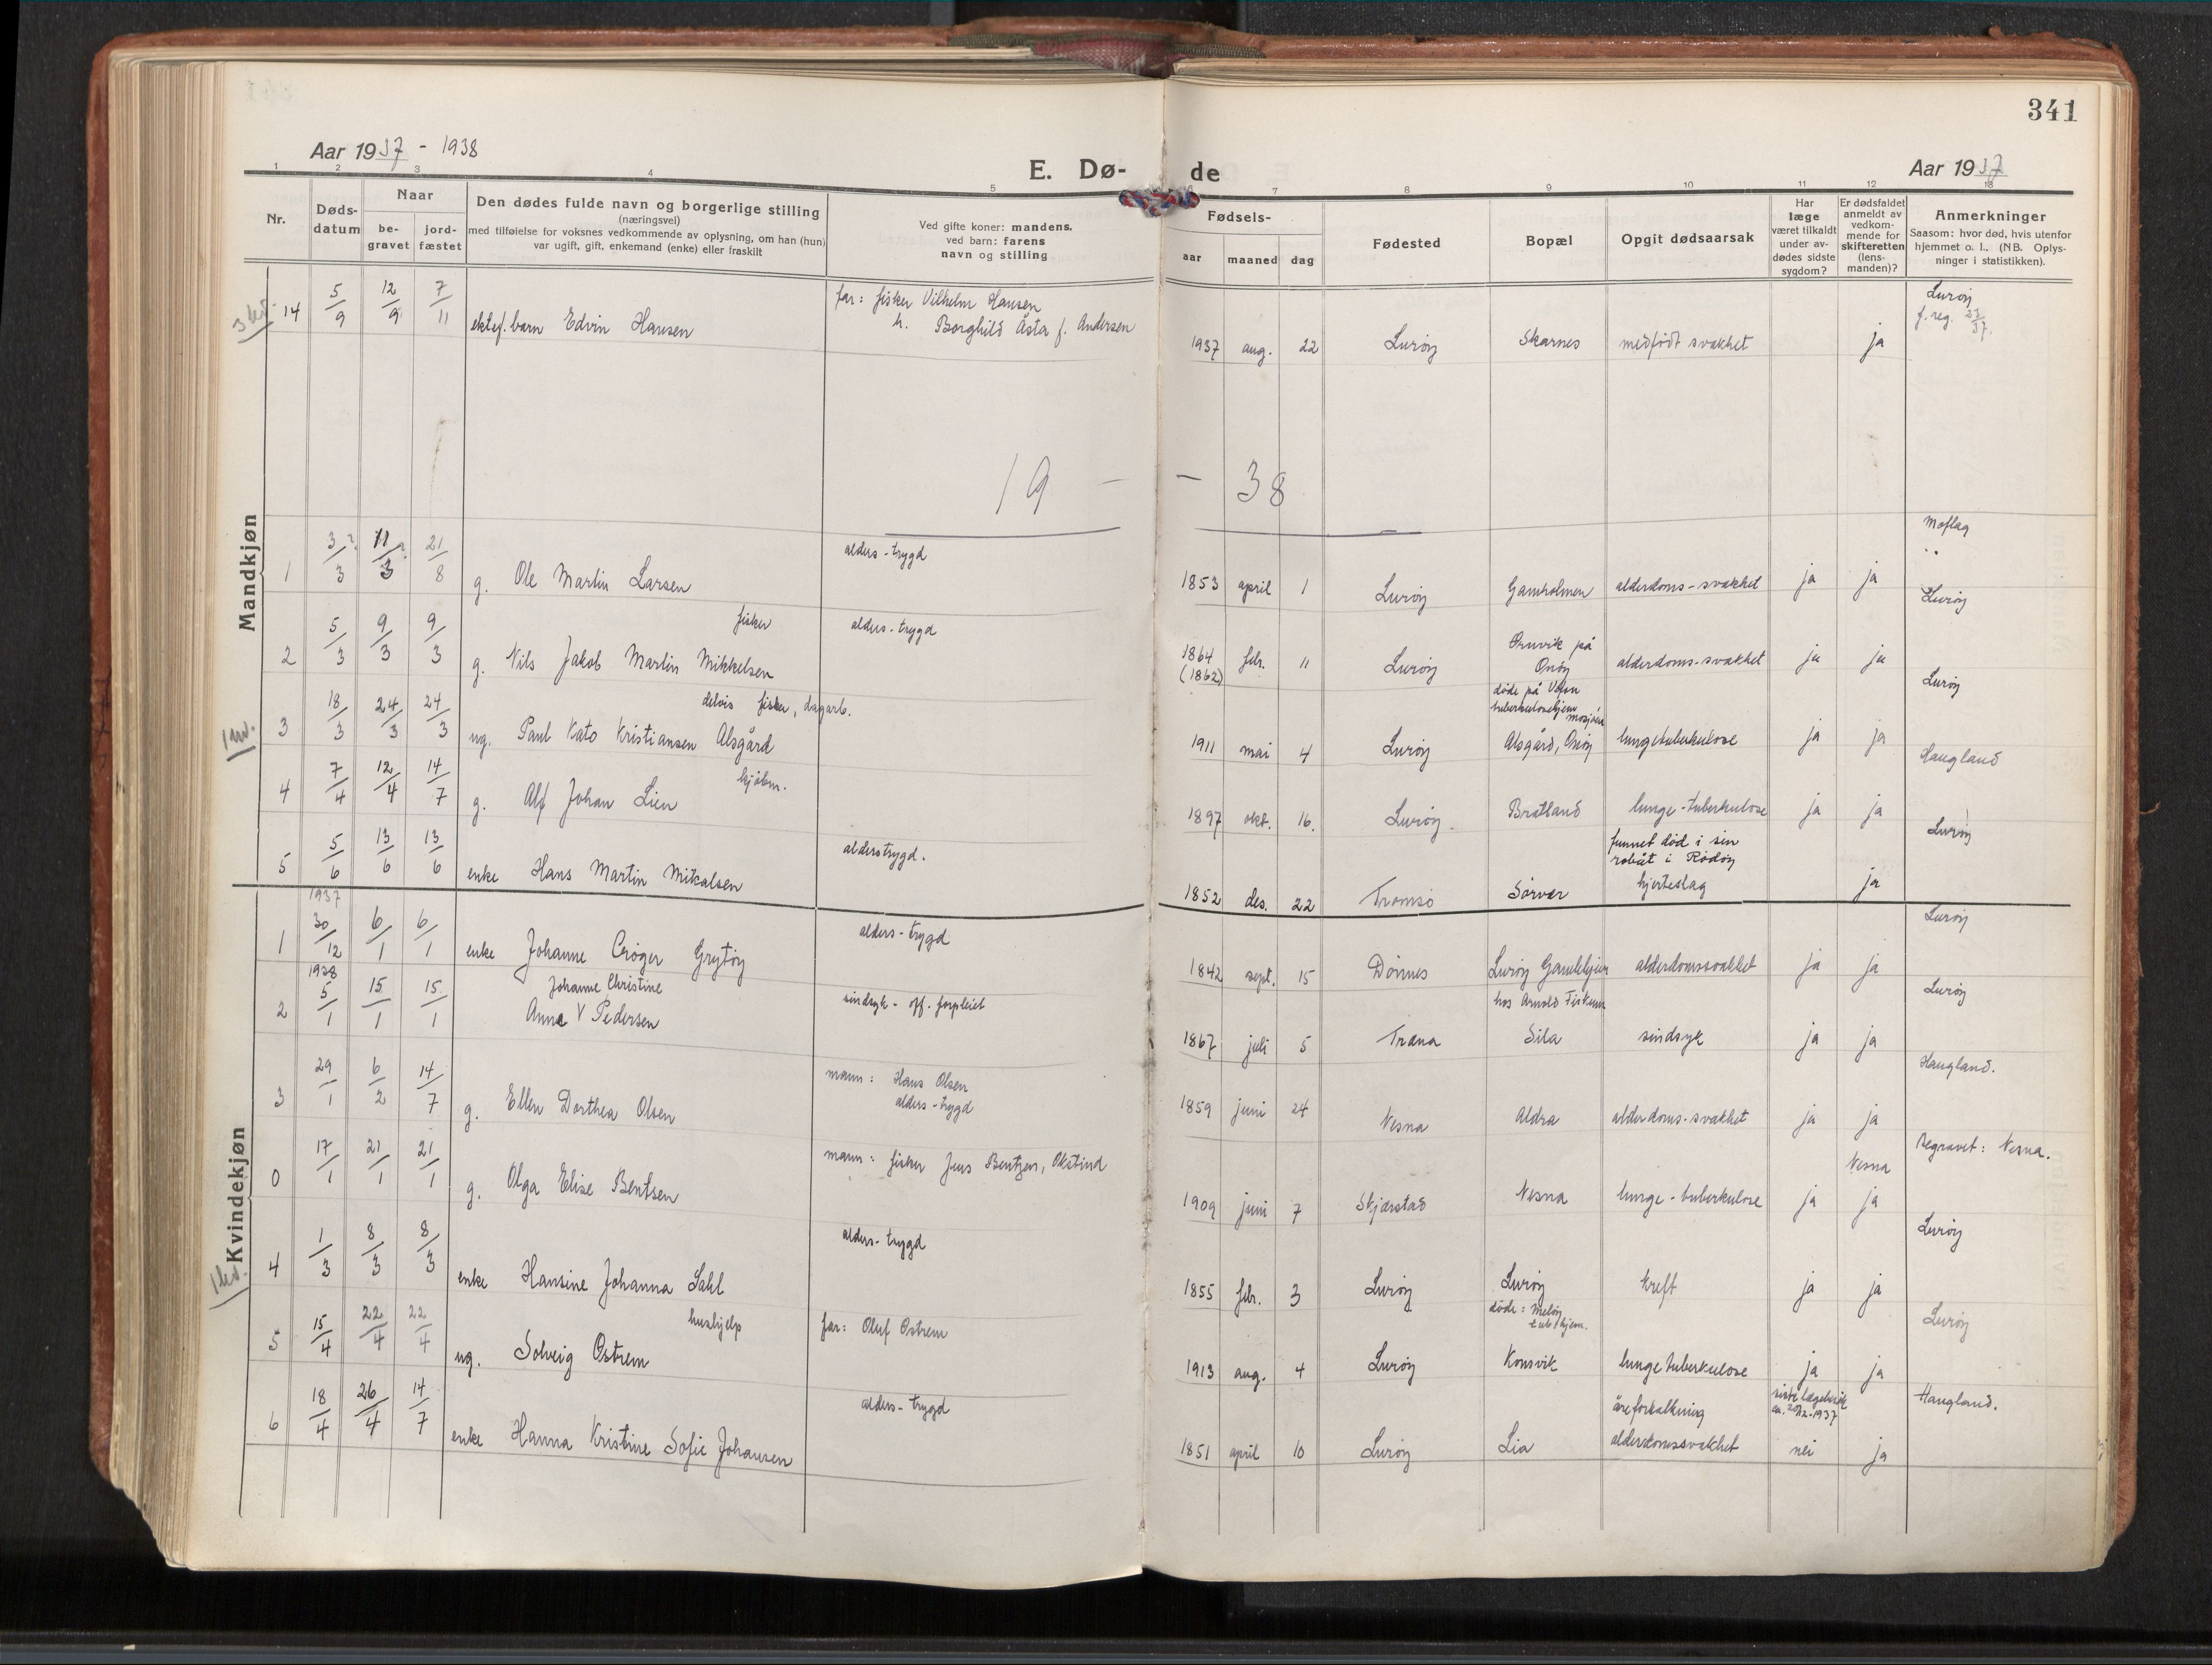 341
Aar 1937 - 1938
E. Dø-
de
Aar 1937
1 2 3 4 5 6 7 8 9 10 11 12 13
Nr.
Døds-
datum
Naar
be-
gravet
jord-
fæstet
Den dødes fulde navn og borgerlige stilling
(næringsvei)
med tilføielse for voksnes vedkommende av oplysning, om han (hun)
var ugift, gift, enkemand (enke) eller fraskilt
Ved gifte koner: mandens,
ved barn: farens
navn og stilling
Fødsels-
aar
maaned
dag
Fødested
Bopæl
Opgit dødsaarsak
Har
læge
været tilkaldt
under av-
dødes sidste
sygdom?
Er dødsfaldet
anmeldt av
vedkom-
mende for
skifteretten
(lens-
manden)?
Anmerkninger
Saasom: hvor død, hvis utenfor
hjemmet o. l.. (NB. Oplys-
ninger i statistikken).
Mandkjøn
14 5/9 12/9 7/11 ektef. barn Edvin Hansen
far: fisker Vilhelm Hansen
h. Borghild Åsta f. Andersen
1937 aug. 22 Lurøy Skarnes medfødt svakhet ja
Lurøy
f. reg.
19 - - 38
1 3/3? 11/3? 21/8 g. Ole Martin Larsen
alders-trygd
1853 april 1 Lurøy Gamholmen alderdoms-svakhet ja ja
Moflag
2 5/3 9/3 9/3 g. Nils Jakob Martin Mikkelsen
fisker
alders-trygd
1864 febr. 11 Lurøy
(1862)
på
Onøy
alderdoms-svakhet ja ja
Lurøy
3 18/3 24/3 24/3 ug. Paul Kato Kristiansen Alsgård
delvis fisker, dagarb.
1911 mai 4 Lurøy
døde på Vefsn
tuberkulosehjem
Mosjøen
Alsgård, Onøy lungetuberkulose ja ja
Lurøy
4 7/4 12/4 14/7 g. Alf Johan Lien
kjøbm.
1897 okt. 16. Lurøy Bratland lunge-tuberkulose ja ja
Haugland
5 5/6 13/6 13/6 enke Hans Martin Mikalsen
alderstrygd.
1852 des. 22 Tromsø Sørvær
funnet død i sin
robåt i Rødøy
hjerteslag
ja
Lurøy
Kvindekjøn
1937
1 30/12 6/1 6/1 enke Johanne Crøger Grytøy
alders-trygd
1842 sept. 15 Dønnes Lurøy Gamlehjem alderdomssvakhet ja ja
Lurøy
1938
2 5/1 15/1 15/1
Johanne Christine
Anna V Pedersen
sindsyk - off. forpleiet
1867 juli 5 Træna
hos Arnold Fiskum
Sila sindsyk ja ja
Lurøy
3 29/1 6/2 14/7 g. Ellen Dorthea Olsen
mann: Hans Olsen
alders-trygd
1859 juni 24 Nesna Aldra alderdoms-svakhet ja ja
Haugland.
0 17/1 21/1 21/1 g. Olga Elise Bentsen
mann: fisker Jens Bentzen, Okstind
1909 juni 7 Skjerstad Nesna lunge-tuberkulose ja ja
Nesna
Begravet: Nesna.
4 1/3 8/3 8/3 enke Hansine Johanna Dahl
alders-trygd
1855 febr. 3 Lurøy Lurøy kreft ja ja
Lurøy
5 15/4 22/4 22/4 ug. Solveig Østrem
hushjelp
far: Oluf Østrem
1913 aug. 4 Lurøy
døde: Meløy
tub.hjem.
Konsvik lungetuberkulose ja ja
Lurøy
6 18/4 26/4 14/7 enke Hanna Kristine Sofie Johansen
alders-trygd
1851 april 10 Lurøy Lia
åreforkalkning
alderdomssvakhet
siste lægebesøk
ca. 20/12-1937
nei ja
Haugland.